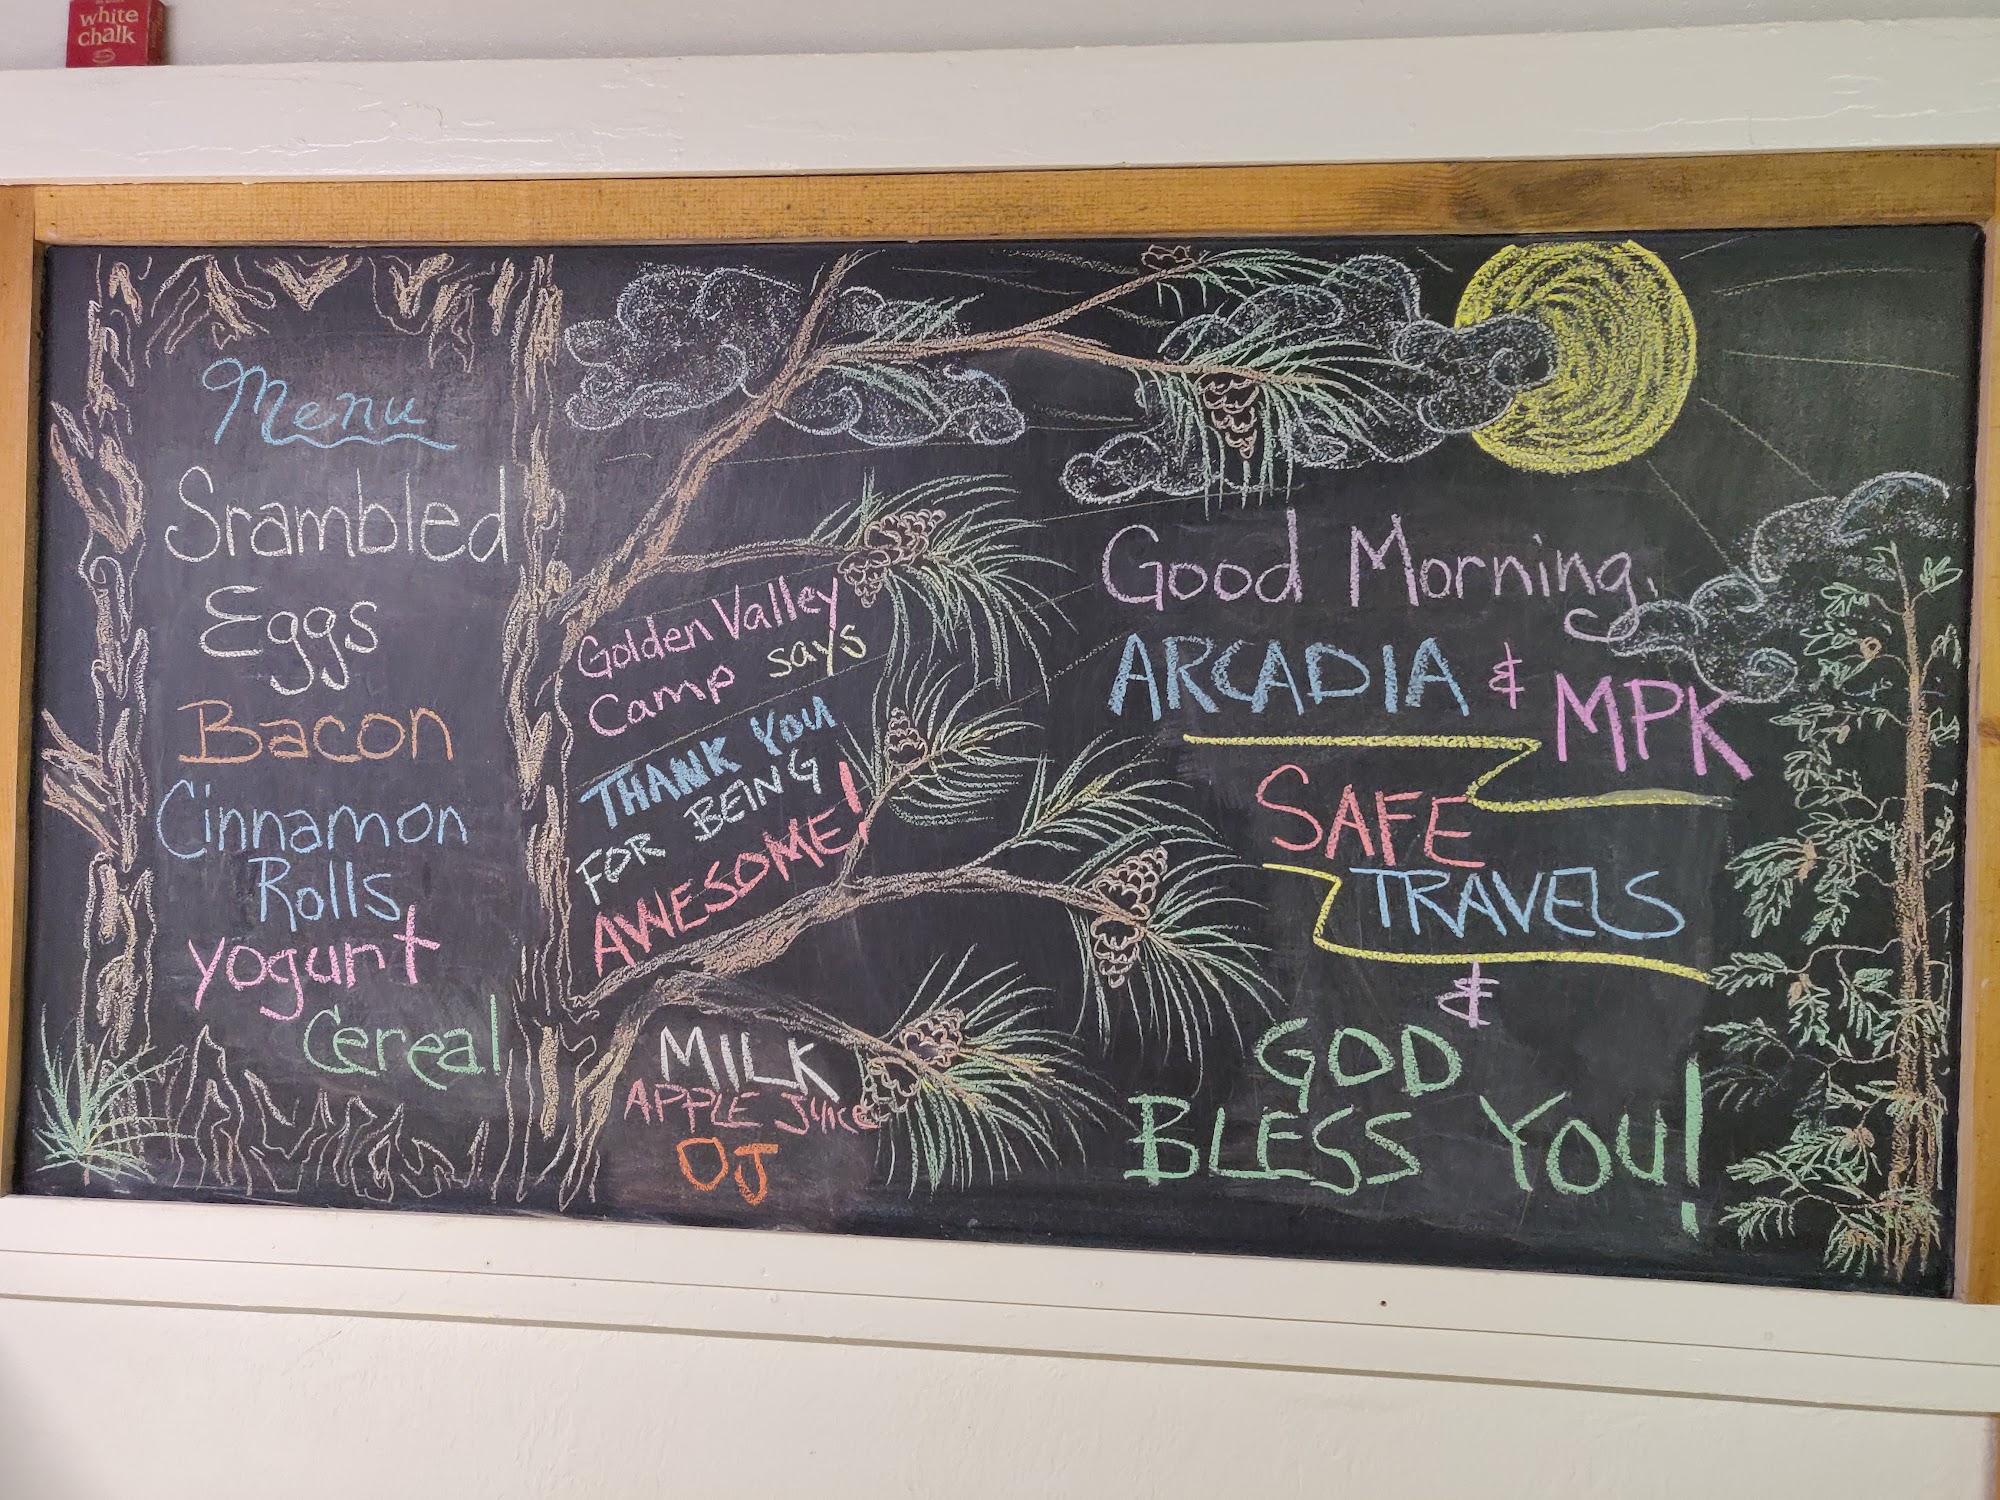 white
chalk
Menu
Srambled
Eggs
Bacon
Cinnamon
Rolls
yogurt
Cereal
Golden Valley
Camp says
THANK YOU
FOR BEING
AWESOME!
MILK
APPLE JUICE
OJ
Good Morning,
ARCADIA & MPK
SAFE
TRAVELS
&
GOD
BLESS YOU!